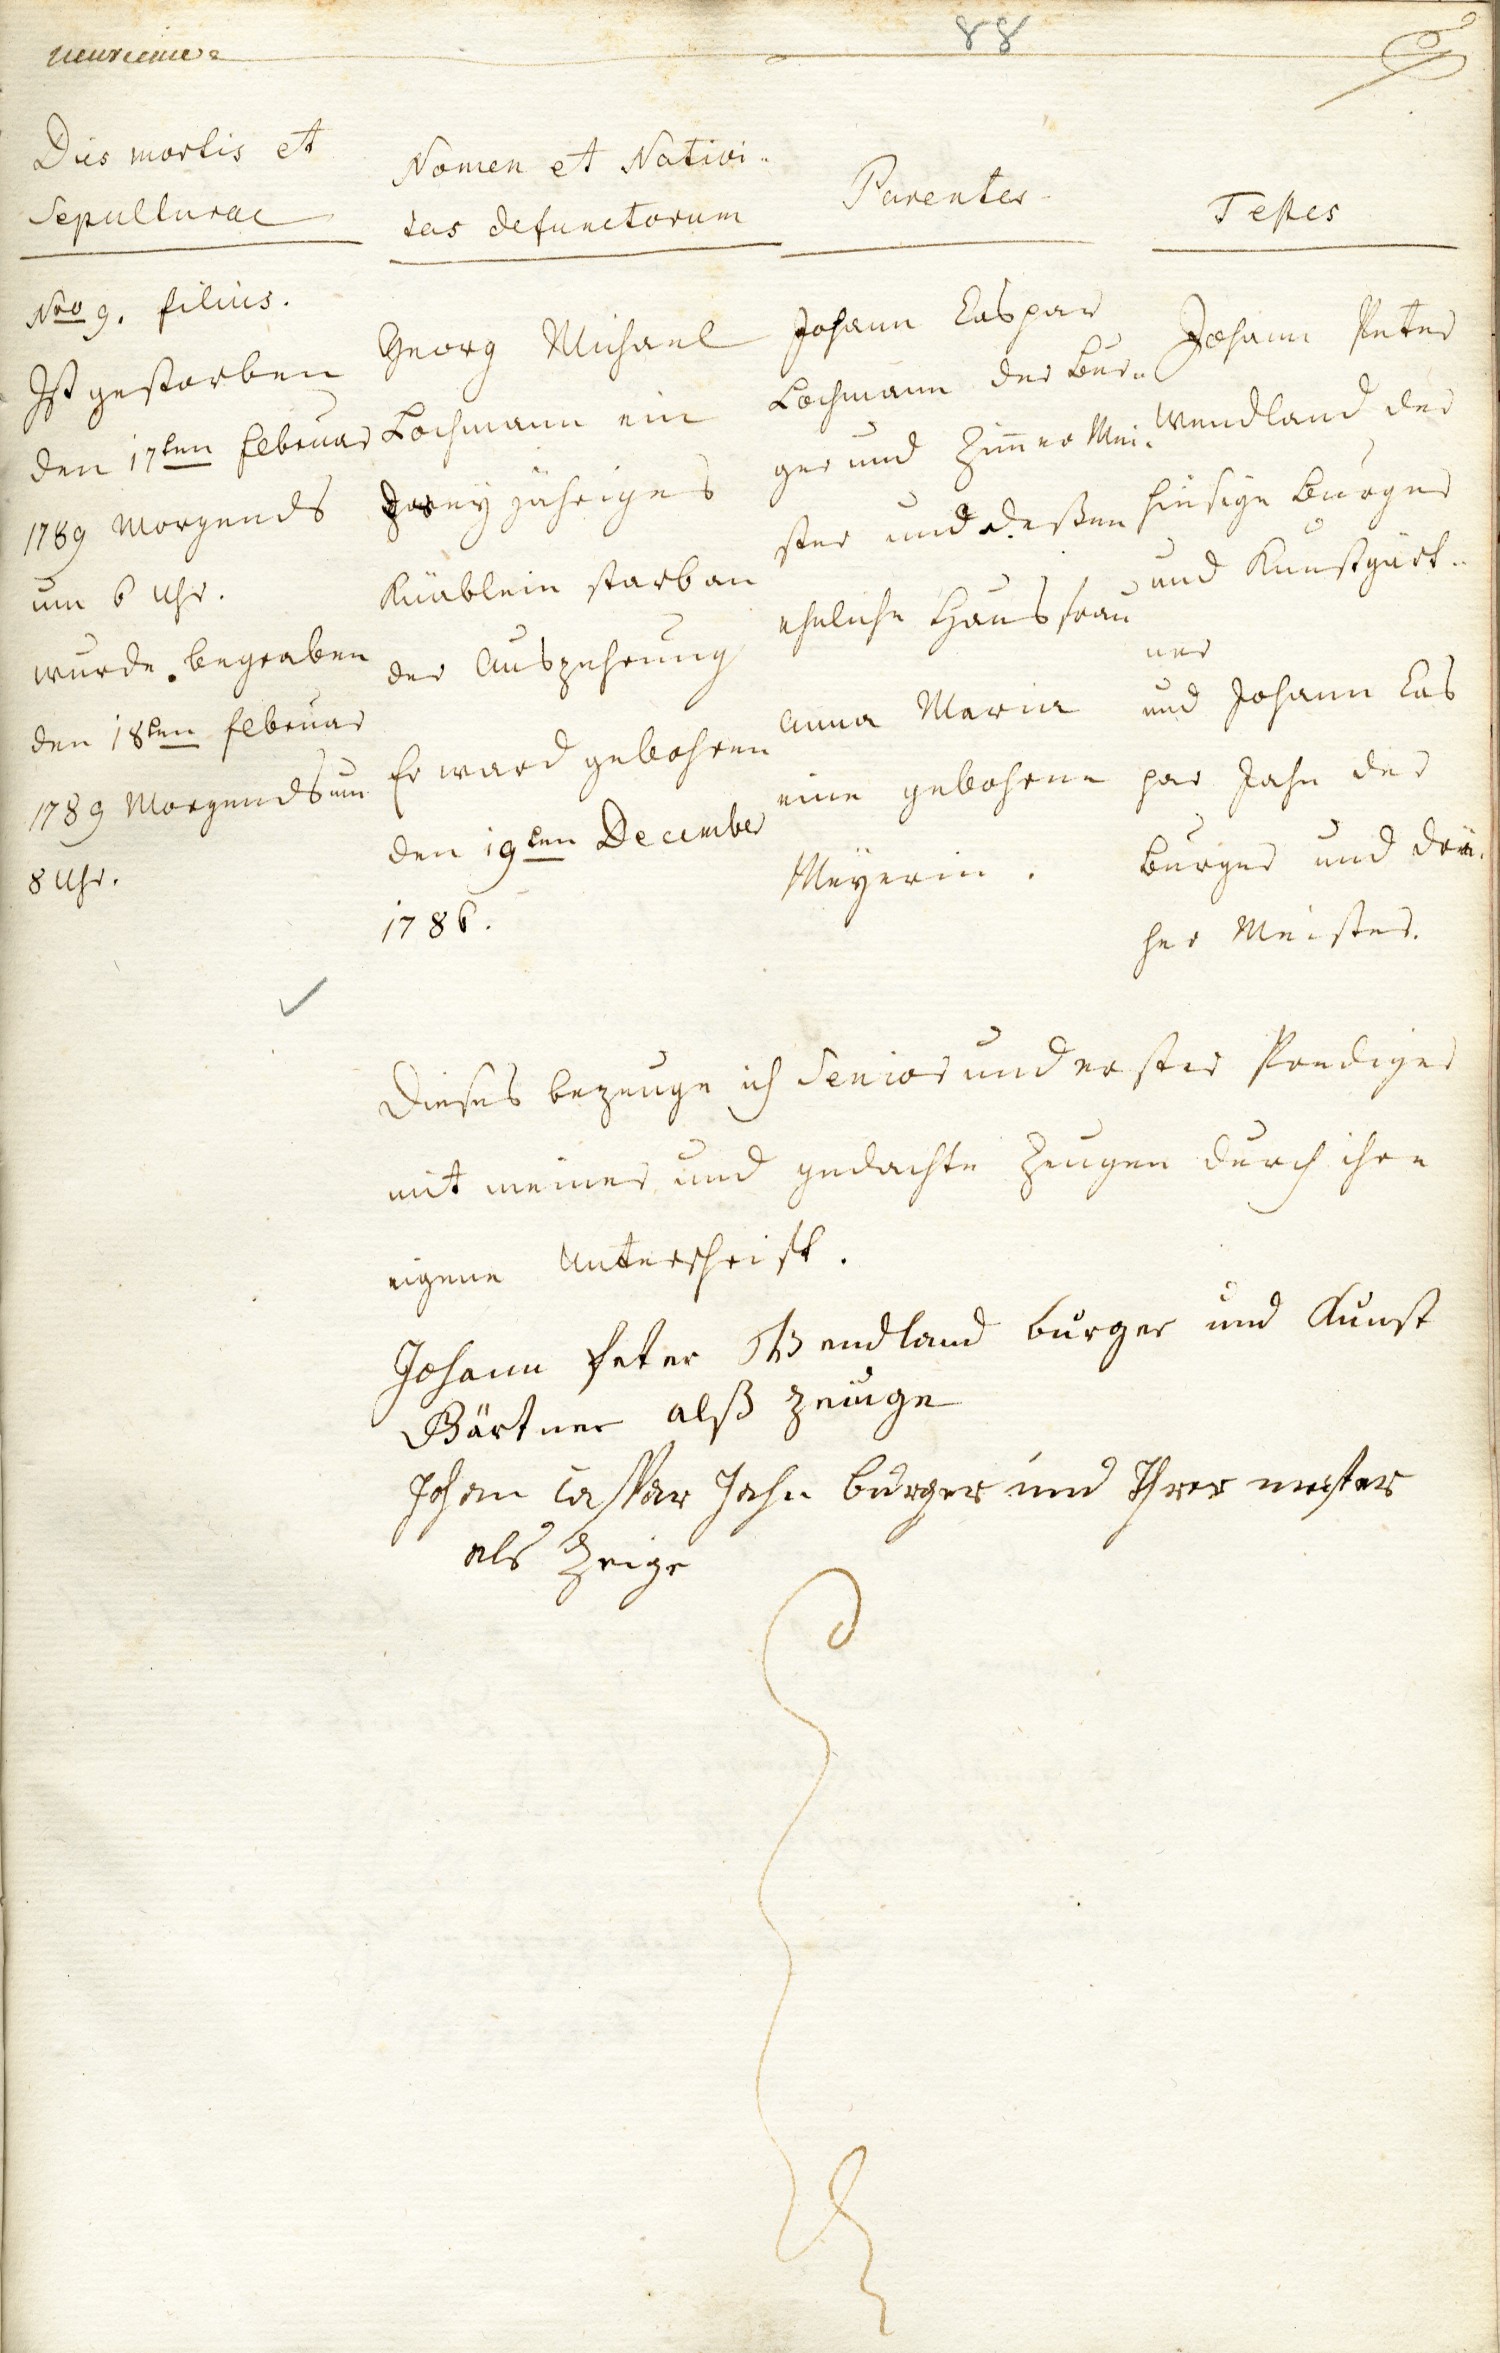 88
Dies mortis et
Sepulturae
Nomen et Nativi-
tas defunctorum
Parentes
Testes
Nro 9. filius.
Ist gestorben
den 17ten Februar
1789 Morgends
um 6 Uhr.
wurde begraben
den 18ten Februar
1789 Morgends um
8 Uhr.
Georg Michael
Lochmann ein
zweyjähriges
Knäblein starb an
der Auszehrung
Er ward gebohren
den 19ten December
1786.
Johann Caspar
Lochmann der Bur-
ger und Zimer Mei-
ster und deßen
eheliche Hausfrau
Anna Maria
eine gebohrne
Meyerin.
Johann Peter
Wendland der
hiesige Burger
und Kunstgärt-
ner
und Johann Cas
par Jahn der
Burger und Drä-
her Meister.
Dieses bezeuge ich Senior und erster Prediger
mit meiner und gedachte Zeugen durch ihre
eigene Unterschrift.
Johann Peter Wendland burger und Kunst
Gärtner alß zeuge
Johan Caspar Jahn burger und meister
als Zeige